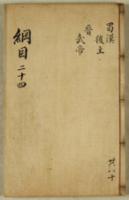 蜀漢
後主
晉
武帝
綱目二十四
共八十